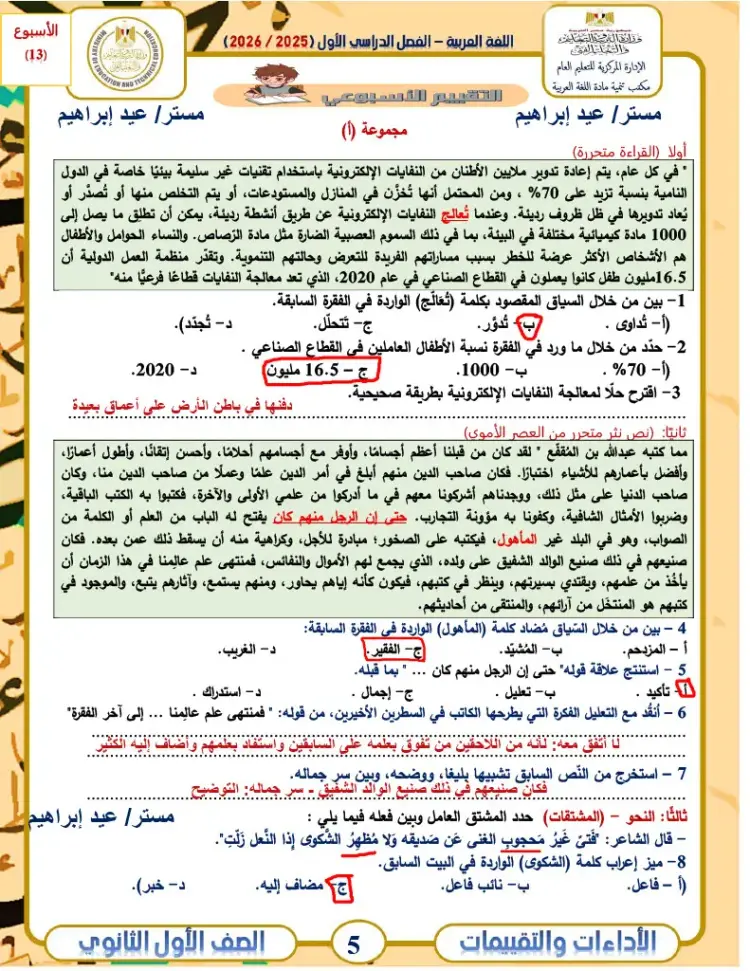 الأسبوع
(13)
اللغة العربية – الفصل الدراسي الأول (2025 / 2026)
وزارة التربية والتعليم
والتعليم الفني
الإدارة المركزية للتعليم العام
مكتب تنمية مادة اللغة العربية
التقييم الأسبوعي
مستر/ عيد إبراهيم
مستر/ عيد إبراهيم
مجموعة (أ)
أولا (القراءة متحررة)
" في كل عام، يتم إعادة تدوير ملايين الأطنان من النفايات الإلكترونية باستخدام تقنيات غير سليمة بيئيًا خاصة في الدول
النامية بنسبة تزيد على 70% ، ومن المحتمل أنها تُخزَّن في المنازل والمستودعات، أو يتم التخلص منها أو تُصدَّر أو
يُعاد تدويرها في ظل ظروف رديئة. وعندما تُعالج النفايات الإلكترونية عن طريق أنشطة رديئة، يمكن أن تطلِق ما يصل إلى
1000 مادة كيميائية مختلفة في البيئة، بما في ذلك السموم العصبية الضارة مثل مادة الرّصاص. والنساء الحوامل والأطفال
هم الأشخاص الأكثر عرضة للخطر بسبب مساراتهم الفريدة للتعرض وحالتهم التنموية. وتقدّر منظمة العمل الدولية أن
16.5مليون طفل كانوا يعملون في القطاع الصناعي في عام 2020، الذي تعد معالجة النفايات قطاعًا فرعيًّا منه"
1– بين من خلال السياق المقصود بكلمة (تُعَالَج) الواردة في الفقرة السابقة.
(أ– تُداوى . ب– تُدوَّر. ج– تَتحلّل. د– تُجدّد).
2– حدّد من خلال ما ورد في الفقرة نسبة الأطفال العاملين في القطاع الصناعي .
(أ– 70% . ب– 1000. ج – 16.5 مليون د– 2020.
3– اقترح حلًا لمعالجة النفايات الإلكترونية بطريقة صحيحية.
دفنها في باطن الأرض على أعماق بعيدة
ثانيًا: (نص نثر متحرر من العصر الأموي)
مما كتبه عبدالله بن المُقفّع " لقد كان من قبلنا أعظم أجسامًا، وأوفر مع أجسامهم أحلامًا، وأحسن إتقانًا، وأطول أعمارًا،
وأفضل بأعمارهم للأشياء اختبارًا. فكان صاحب الدين منهم أبلغ في أمر الدين علمًا وعملًا من صاحب الدين منا، وكان
صاحب الدنيا على مثل ذلك، ووجدناهم أشركونا معهم في ما أدركوا من علمي الأولى والآخرة، فكتبوا به الكتب الباقية،
وضربوا الأمثال الشافية، وكفونا به مؤونة التجارب. حتى إن الرجل منهم كان يفتح له الباب من العلم أو الكلمة من
الصواب، وهو في البلد غير المأهول، فيكتبه على الصخور؛ مبادرة للأجل، وكراهية منه أن يسقط ذلك عمن بعده. فكان
صنيعهم في ذلك صنيع الوالد الشفيق على ولده، الذي يجمع لهم الأموال والنفائس، فمنتهى علم عالِمنا في هذا الزمان أن
يأخُذ من علمهم، ويقتدي بسيرتهم، وينظر في كتبهم، فيكون كأنه إياهم يحاور، ومنهم يستمع، وآثارهم يتبع، والموجود في
كتبهم هو المنتخَل من آرائهم، والمنتقى من أحاديثهم.
4 – بين من خلال السّياق مُضاد كلمة (المأهول) الواردة في الفقرة السابقة:
أ – المزدحم. ب– المُشيّد. ج– الفقير. د– الغريب.
5 – استنتج علاقة قوله" حتى إن الرجل منهم كان ... " بما قبله.
أ– تأكيد . ب– تعليل . ج– إجمال . د– استدراك .
6 – أنقُد مع التعليل الفكرة التي يطرحها الكاتب في السطرين الأخيرين، من قوله: " فمنتهى علم عالِمنا ... إلى آخر الفقرة"
لا أتفق معه: لأنه من اللاحقين من تفوق بعلمه على السابقين واستفاد بعلمهم وأضاف إليه الكثير
7 – استخرج من النّص السابق تشبيها بليغا، ووضحه، وبين سر جماله.
فكان صنيعهم في ذلك صنيع الوالد الشفيق - سر جماله: التوضيح
ثالثًا: النحو – (المشتقات) حدد المشتق العامل وبين فعله فيما يلي :
مستر/ عيد إبراهيم
– قال الشاعر: "فَتىً غَيرُ مَحجوبِ الغنى عَن صَديقه وَلا مُظهِرُ الشَّكوى إِذا النَّعل زَلَّتِ".
8– ميز إعراب كلمة (الشكوى) الواردة في البيت السابق.
(أ – فاعل. ب– نائب فاعل. ج– مضاف إليه. د– خبر).
الأداءات والتقييمات
5
الصف الأول الثانوي